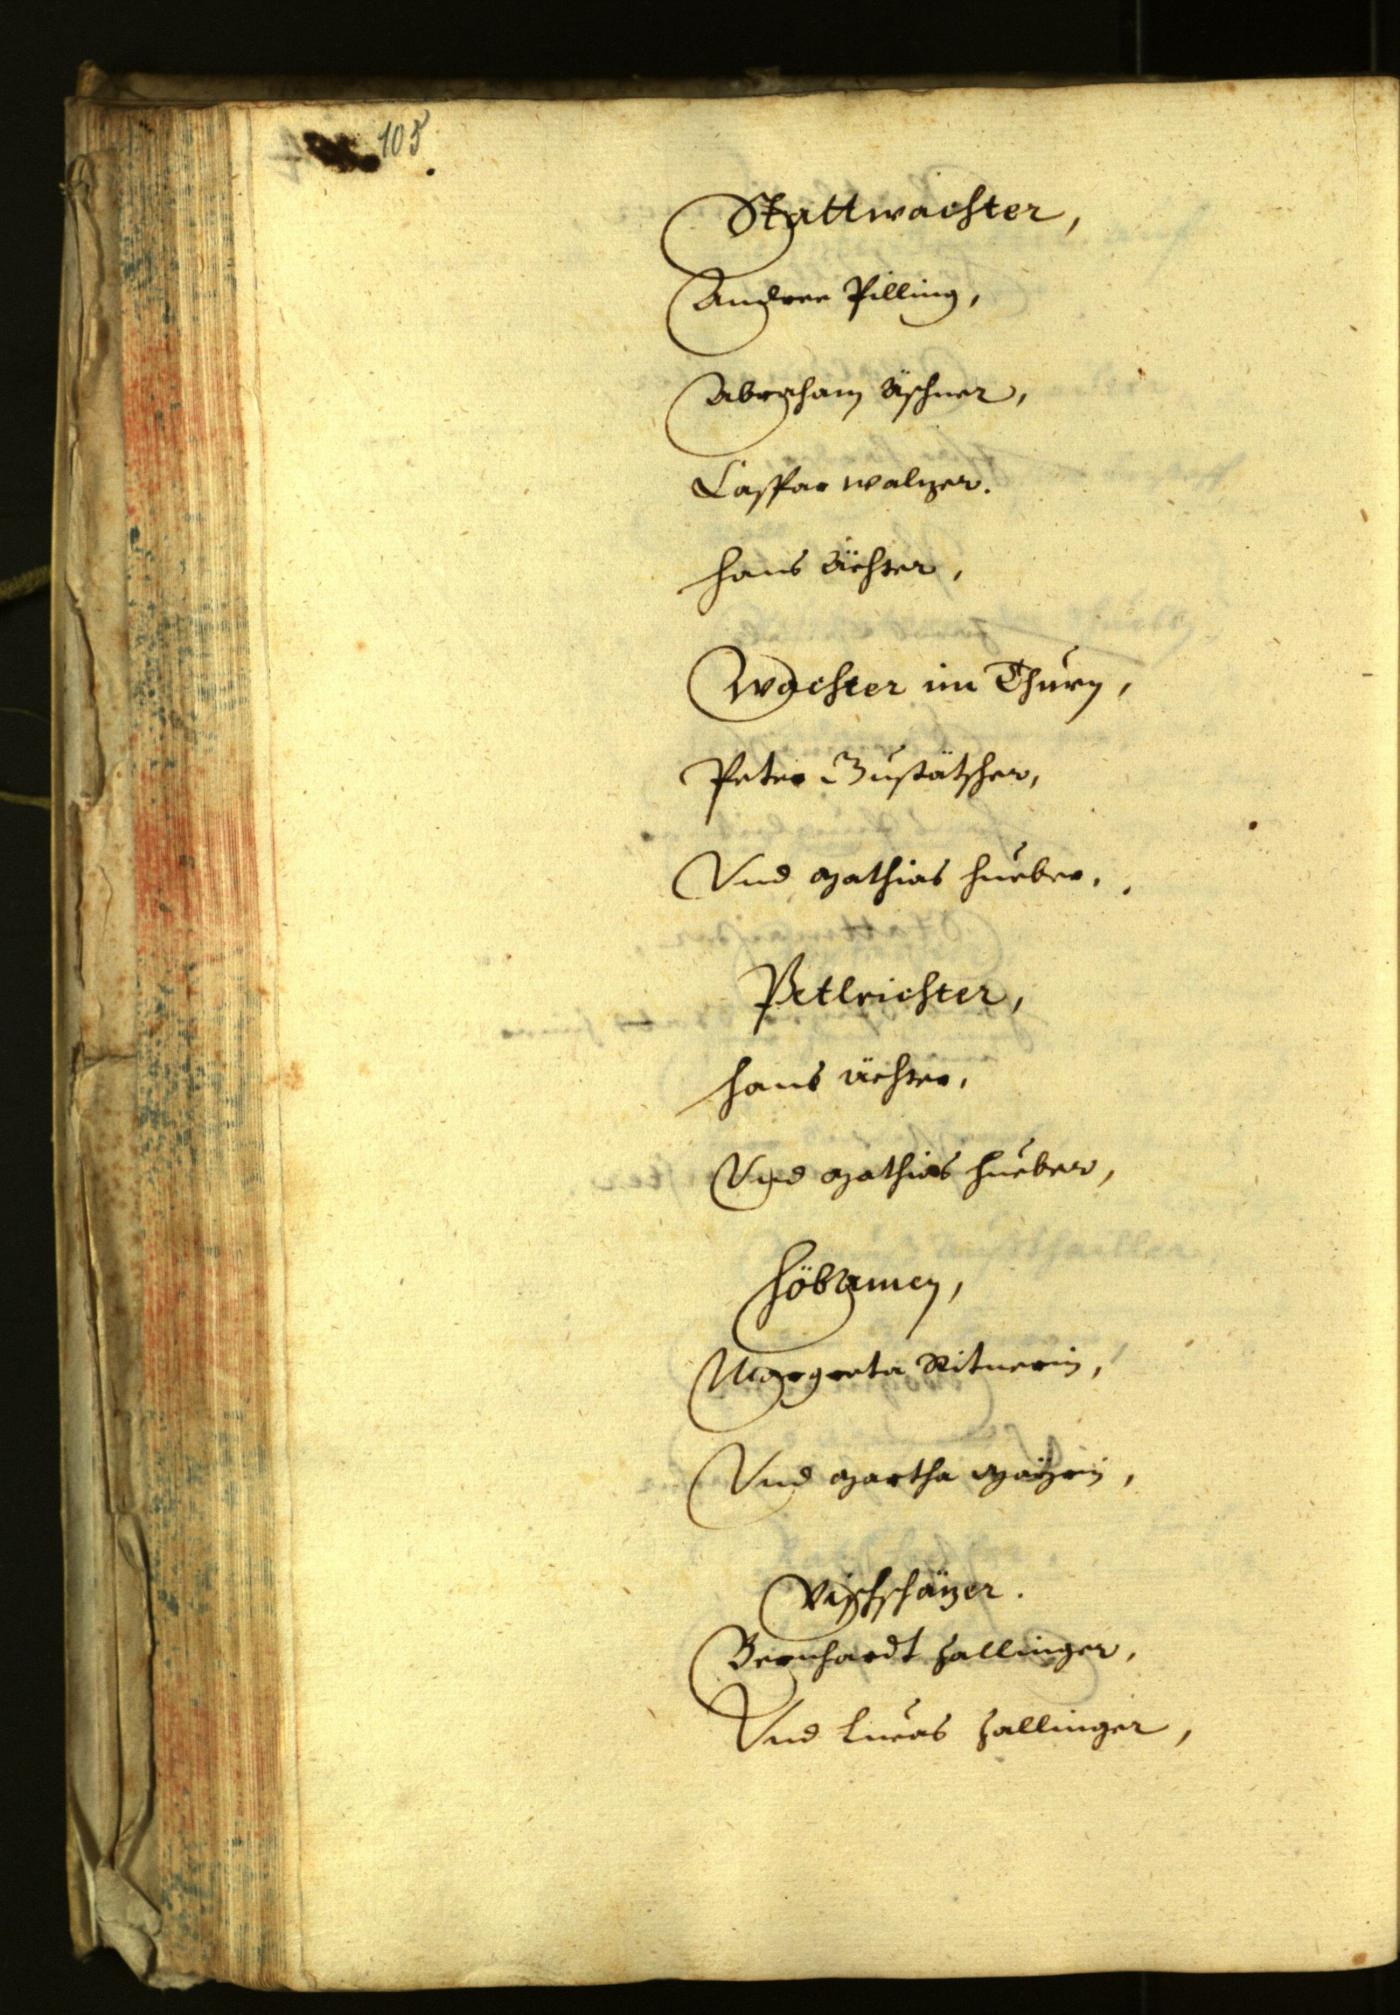 105
Stattwachter,
Andree Pilling,
Abraham Äschner,
Casspar Walzer.
Hans Ächter,
Wachter im Thurn,
Peter Zustätscher,
Vnd Mathias Hueber,
Petlrichter,
Hans Ächter,
Vnd Mathias Hueber,
Höbamen,
Margreta Ritnerin,
Vnd Martha
Vischschäzer.
Bernhardt Zallinger,
Vnd Lucas Zallinger,